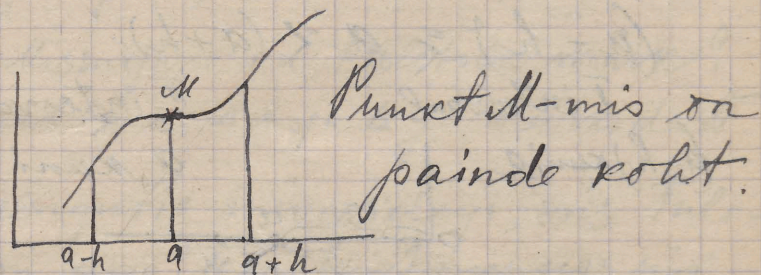 M
Punkt M-mis on
painde koht.
a-h a a+h